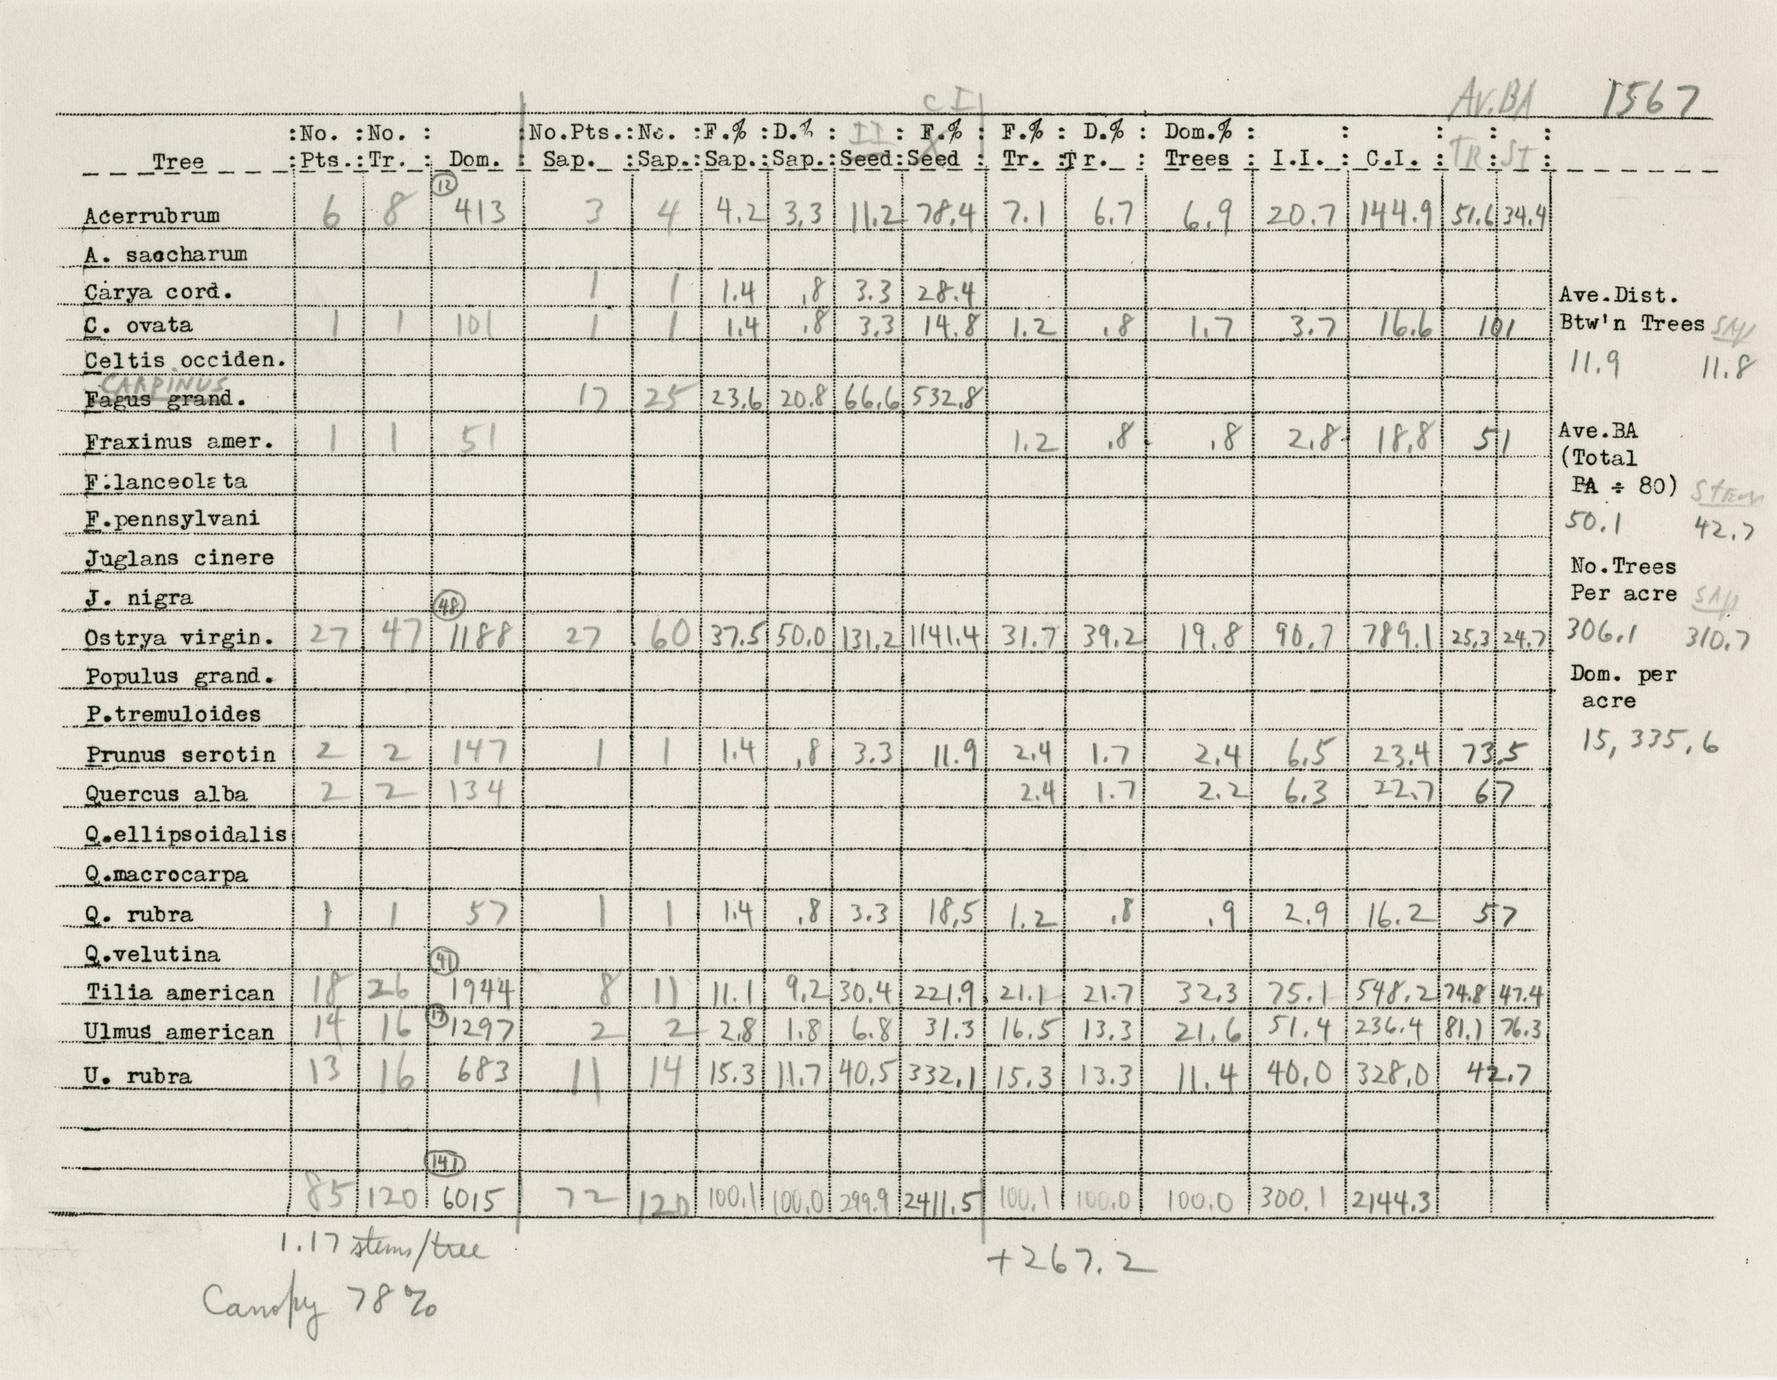 Av.BA 1567
C I
:No. :No. : :No.Pts.:No. :F.% :D.% : II : F.% : F.% : D.% : Dom.% : : : : :
Tree :Pts.:Tr. : Dom. : Sap. :Sap.:Sap.:Sap.:Seed:Seed : Tr. :Tr. : Trees : I.I. : C.I. : TR : ST :
Acerrubrum 6 8 (12) 413 3 4 4.2 3.3 11.2 78.4 7.1 6.7 6.9 20.7 144.9 51.6 34.4
A. saccharum
Carya cord. 1 1 1.4 .8 3.3 28.4
C. ovata 1 1 101 1 1 1.4 .8 3.3 14.8 1.2 .8 1.7 3.7 16.6 101
Celtis occiden.
CARPINUS
Fagus grand. 17 25 23.6 20.8 66.6 532.8
Fraxinus amer. 1 1 51 1.2 .8 .8 2.8 18.8 51
F.lanceolata
F.pennsylvani
Juglans cinere
J. nigra
Ostrya virgin. 27 47 (48) 1188 27 60 37.5 50.0 131.2 1141.4 31.7 39.2 19.8 90.7 789.1 25.3 24.7
Populus grand.
P.tremuloides
Prunus serotin 2 2 147 1 1 1.4 .8 3.3 11.9 2.4 1.7 2.4 6.5 23.4 73.5
Quercus alba 2 2 134 2.4 1.7 2.2 6.3 22.7 67
Q.ellipsoidalis
Q.macrocarpa
Q. rubra 1 1 57 1 1 1.4 .8 3.3 18.5 1.2 .8 .9 2.9 16.2 57
Q.velutina
Tilia american 18 26 (41) 1944 8 11 11.1 9.2 30.4 221.9 21.1 21.7 32.3 75.1 548.2 74.8 47.4
Ulmus american 14 16 (17) 1297 2 2 2.8 1.8 6.8 31.3 16.5 13.3 21.6 51.4 236.4 81.1 76.3
U. rubra 13 16 683 11 14 15.3 11.7 40.5 332.1 15.3 13.3 11.4 40.0 328.0 42.7
85 120 (141) 6015 72 120 100.1 100.0 299.9 2411.5 100.1 100.0 100.0 300.1 2144.3
1.17 stems/tree
+267.2
Canopy 78%
Ave.Dist.
Btw'n Trees SAP
11.9 11.8
Ave.BA
(Total
BA ÷ 80) Stems
50.1 42.7
No.Trees
Per acre SAP
306.1 310.7
Dom. per
acre
15,335.6